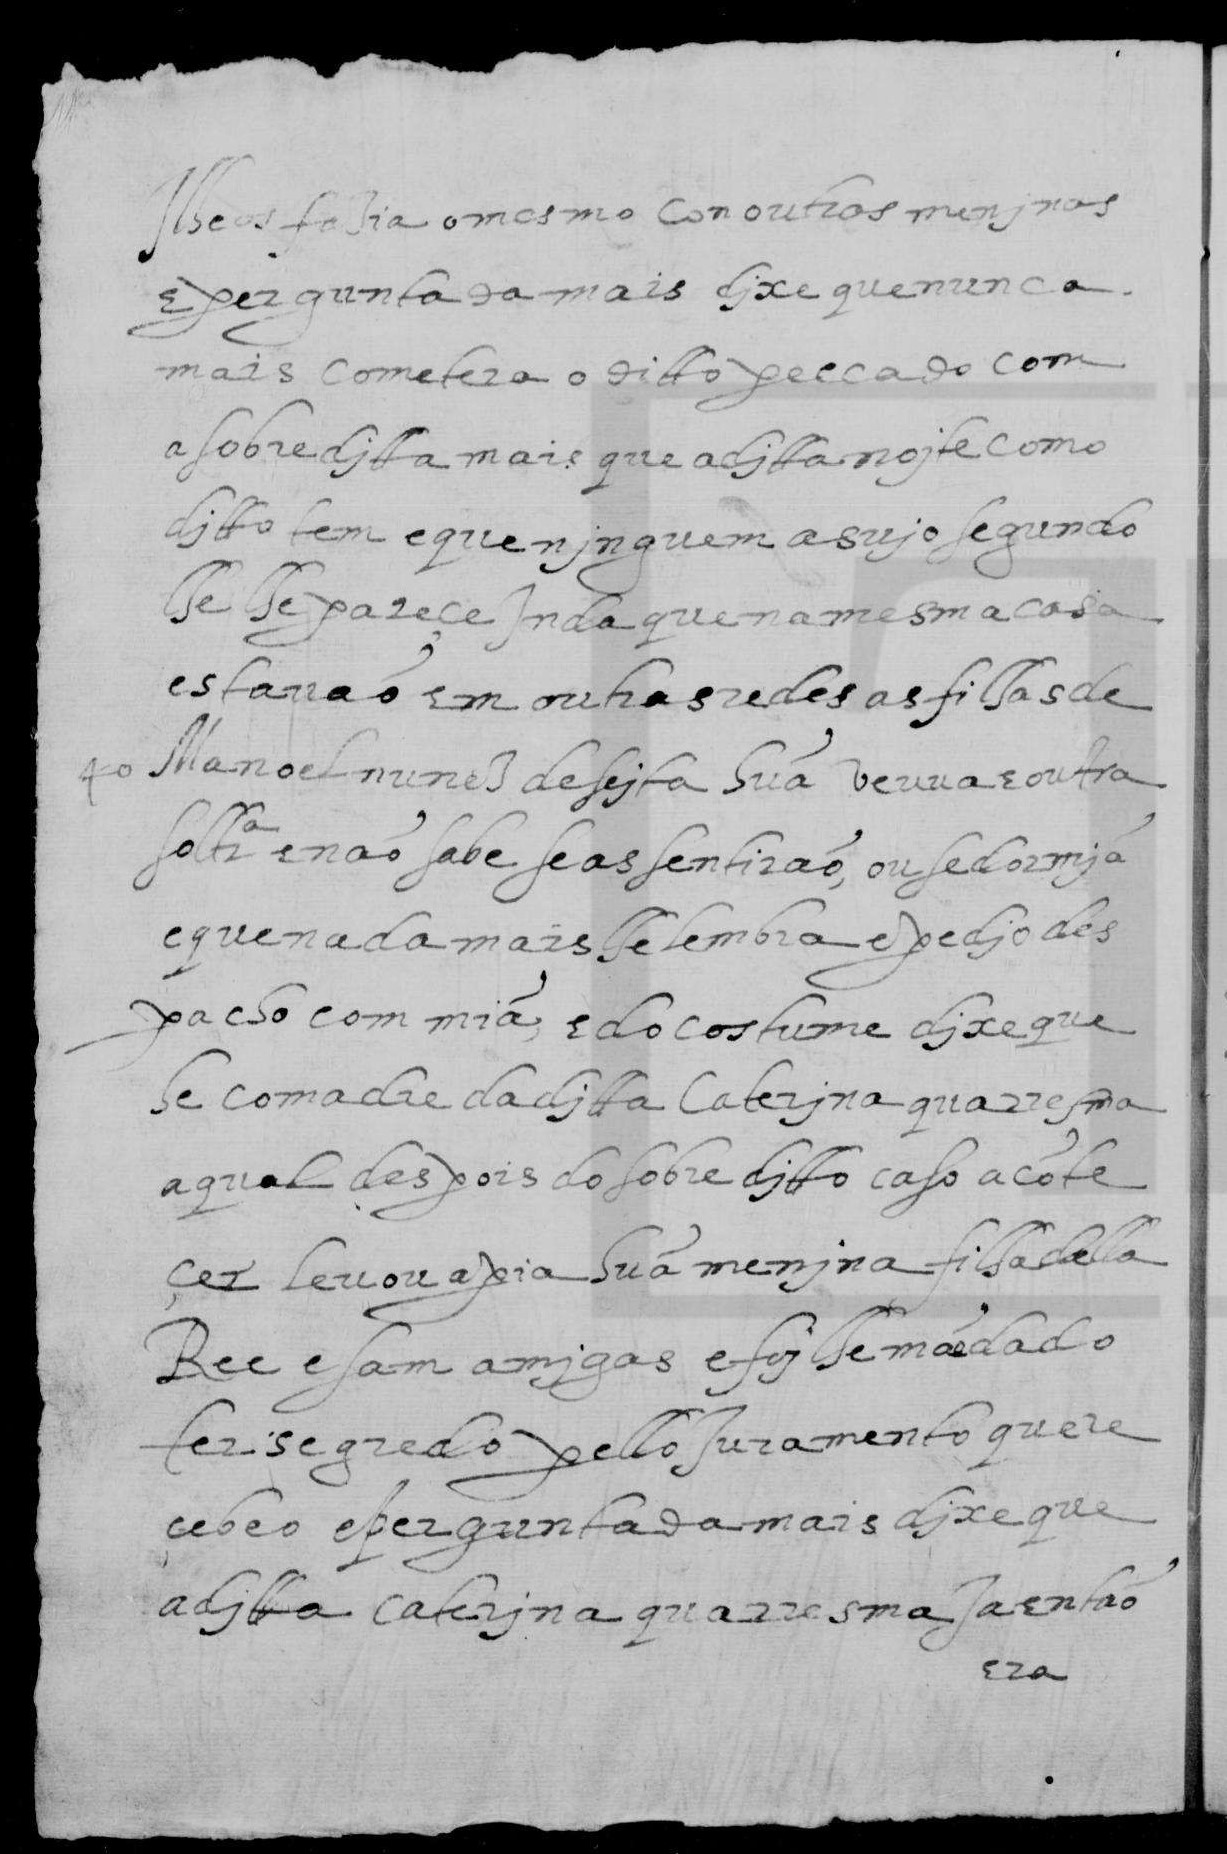 Ilheos fazia o mesmo con outras meninas
e perguntada mais dixe que nunca
mais cometera o ditto peccado com
a sobreditta mais que a ditta nojte como
ditto tem e que njnguem a sujo segundo
lhe lhe parece Inda que na mesma casa
estauaõ em outras redes as filhas de
40 Manoel nunez de sejta huã veuua e outra
soltrª e naõ sabe se as sentiraõ, ou se dormjã
e que nada mais lhe lembra e pedjo des
pacho com miã, e do costume dixe que
he comadre da ditta Caterjna quarresma
a qual despois do sobre ditto caso acõte
çer leuou a pia huã menjna filha della
Ree e sam amjgas e foj lhe mãedado
ter segredo pello Juramento que re
çebeo e perguntada mais djxe que
a djtta Caterjna quarresma Ja entaõ
era